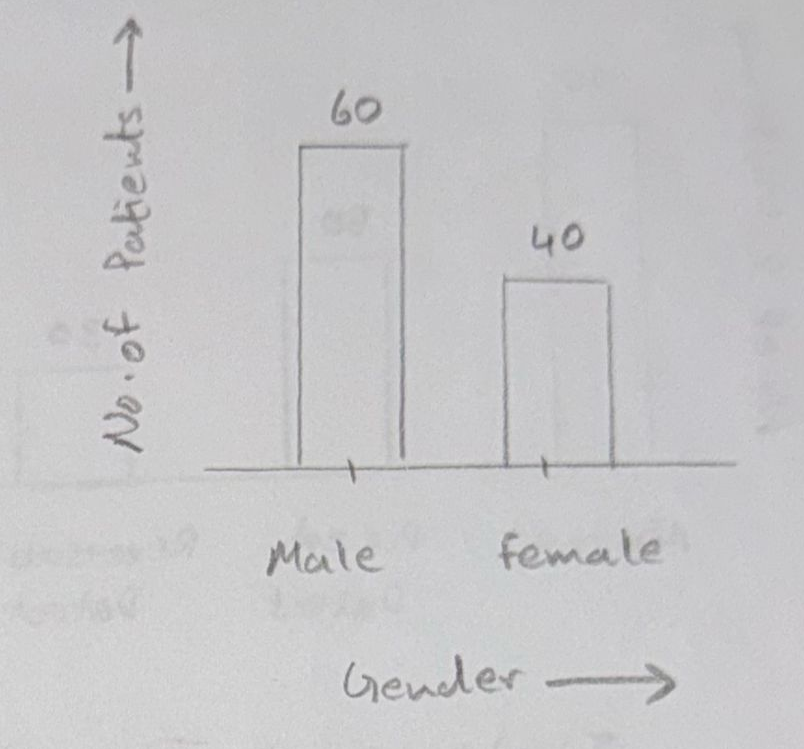 No. of Patients
60
40
Male
female
Gender